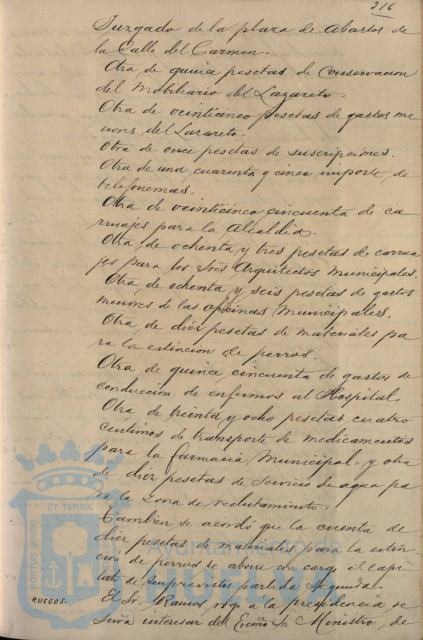 216
Juzgado de la plaza de Abastos de
la Calle del Carmen.
Otra de quince pesetas de conservacion
del Mobiliario del Lazareto.
Otra de veinticinco pesetas de gastos me
nores del Lazareto.
Otra de once pesetas de suscripciones.
Otra de una cuarenta y cinco importe de
telefonemas.
Otra de veinticinco cincuenta de ca
rruajes para la Alcaldia.
Otra de ochenta y tres pesetas de carrua
jes para los Sres Arquitectos Municipales.
Otra de ochenta y seis pesetas de gastos
menores de las oficinas Municipales.
Otra de diez pesetas de materiales pa
ra la estincion de perros.
Otra de quince cincuenta de gastos de
conduccion de enfermos al Hospital.
Otra de treinta y ocho pesetas cuatro
centimos de transporte de medicamentos
para la farmacia Municipal, y otra
de diez pesetas de servicio de agua pa
ra la zona de reclutamiento.
Tambien se acordó que la cuenta de
diez pesetas de materiales para la estin
cion de perros se abone con cargo al capi
tulo de imprevistos partida segunda.
RUEGOS.
El Sr. Ramos rogo a la presidencia se
sirva interesar del Exmo Sr. Ministro de
ET TERRÆ
PORTUS MARIS
Ayuntamiento de
HUELVA